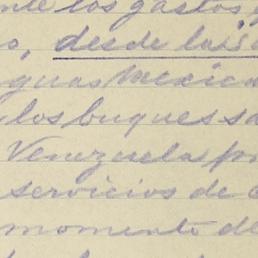 nte los gastos
o, desde la
guas Mexica
los buques sa
Venezuela p
servicios de
momento de